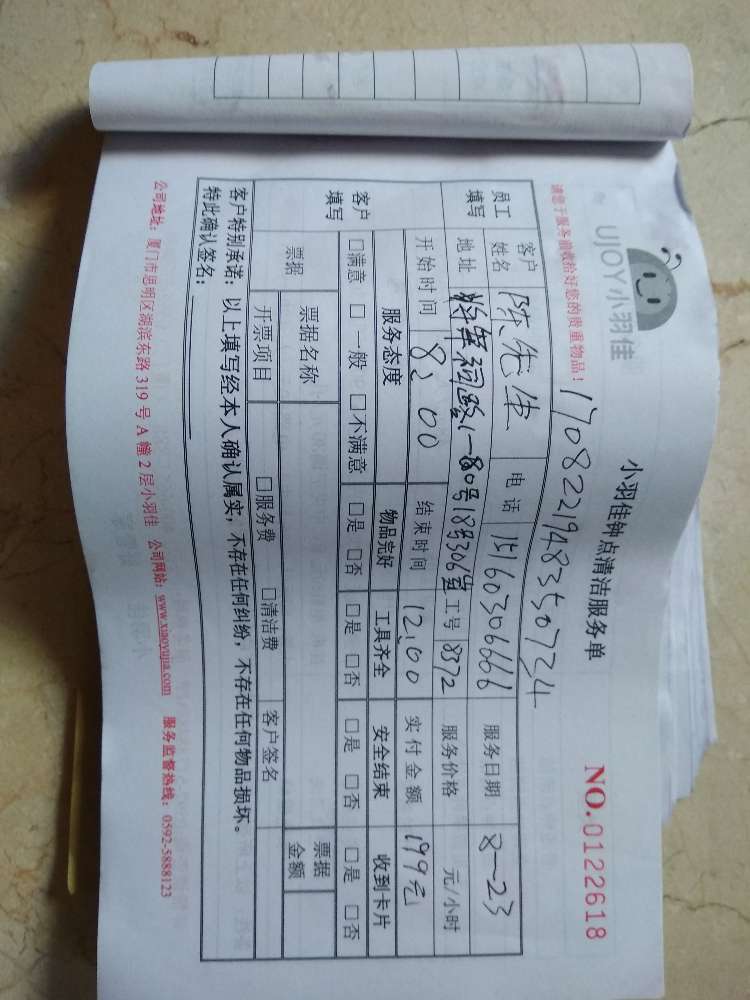 UJOY小羽佳
小羽佳钟点清洁服务单
NO.0122618
请您于服务前收拾好您的贵重物品！
17082219483550724
员工填写
客户姓名 陈先生 电话 15160306666 服务日期 8-23
地址 将军祠路1-80号18号306室 工号 8372 服务价格 元/小时
开始时间 8:00 结束时间 12:00 实付金额 199元
客户填写
服务态度 物品完好 工具齐全 安全结束 收到卡片
□满意 □一般 □不满意 □是 □否 □是 □否 □是 □否 □是 □否
票据 票据名称 票据金额
开票项目 □服务费 □清洁费 客户签名
客户特别承诺：以上填写经本人确认属实，不存在任何纠纷，不存在任何物品损坏。
特此确认签名：
公司地址：厦门市思明区湖滨东路 319 号 A 幢 2 层小羽佳 公司网站：www.xiaoyujia.com 服务监督热线：0592-5888123